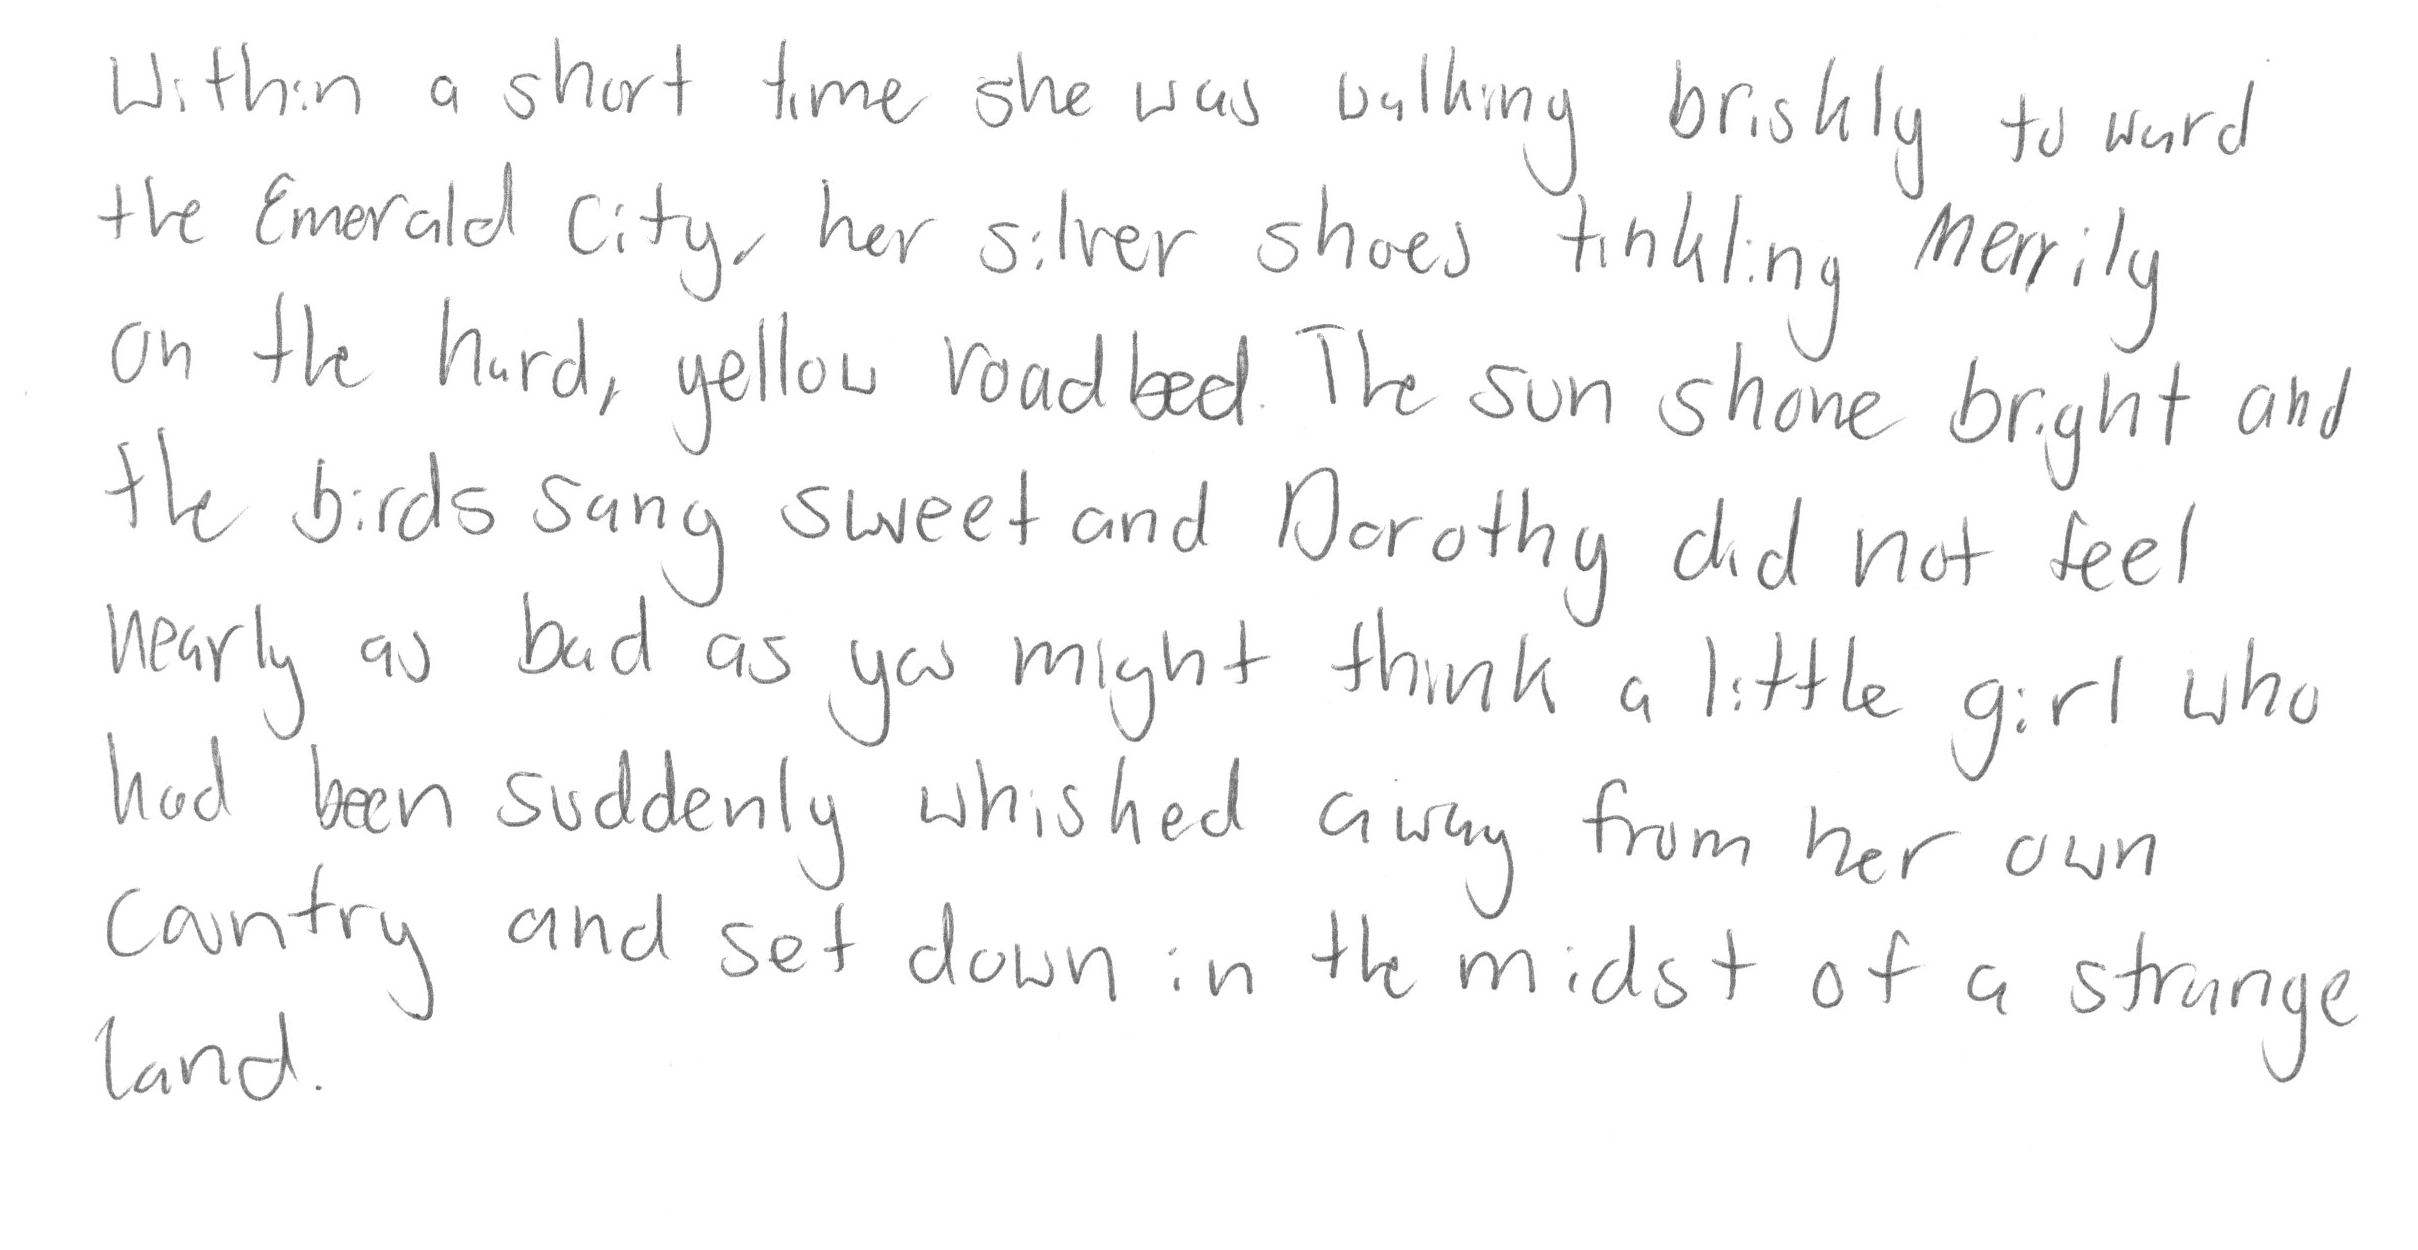 Within a short time she was walking briskly toward
the Emerald City, her silver shoes tinkling Merrily
on the hard, yellow roadbed. The sun shone bright and
the birds sang sweet and Dorothy did not feel
nearly as bad as you might think a little girl who
had been suddenly whished away from her own
country and set down in the midst of a strange
land.